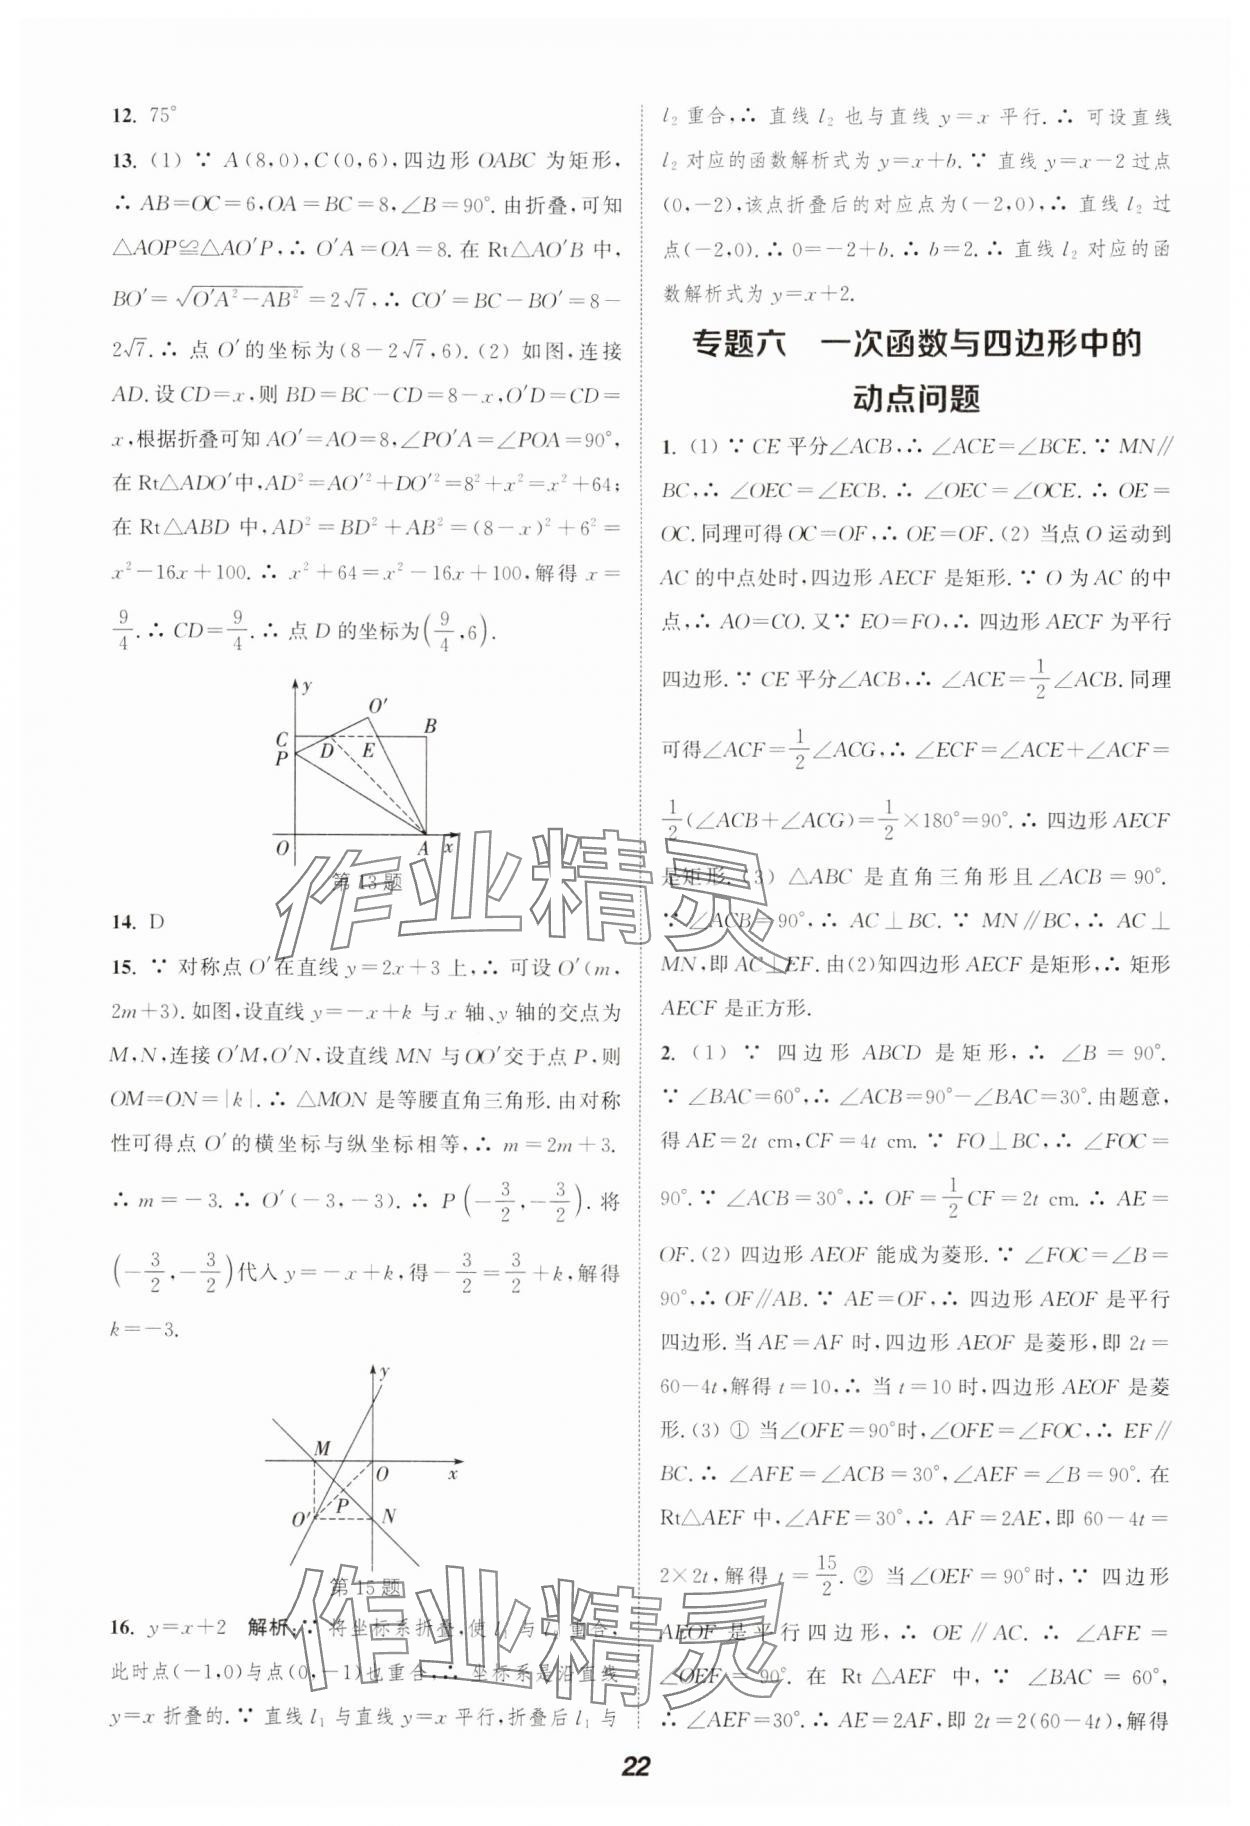 12. 75°
13. (1) ∵ A(8,0),C(0,6),四边形 OABC 为矩形,
∴ AB=OC=6,OA=BC=8,∠B=90°. 由折叠,可知
△AOP≌△AO′P,∴ O′A=OA=8. 在 Rt△AO′B 中,
BO′=√(O′A²-AB²)=2√7,∴ CO′=BC-BO′=8-
2√7.∴ 点 O′的坐标为(8-2√7,6).(2) 如图,连接
AD.设 CD=x,则 BD=BC-CD=8-x,O′D=CD=
x,根据折叠可知 AO′=AO=8,∠PO′A=∠POA=90°,
在 Rt△ADO′中,AD²=AO′²+DO′²=8²+x²=x²+64;
在 Rt△ABD 中,AD²=BD²+AB²=(8-x)²+6²=
x²-16x+100. ∴ x²+64=x²-16x+100,解得 x=
9/4.∴ CD=9/4.∴ 点 D 的坐标为(9/4,6).
y
O′
C D E B
P
O A x
第 13 题
14. D
15. ∵ 对称点 O′在直线 y=2x+3 上,∴ 可设 O′(m,
2m+3).如图,设直线 y=-x+k 与 x 轴、y 轴的交点为
M,N,连接 O′M,O′N,设直线 MN 与OO′交于点 P,则
OM=ON=|k|.∴ △MON 是等腰直角三角形.由对称
性可得点 O′的横坐标与纵坐标相等,∴ m=2m+3.
∴ m=-3.∴ O′(-3,-3).∴ P(-3/2,-3/2).将
(-3/2,-3/2)代入 y=-x+k,得-3/2=3/2+k,解得
k=-3.
y
M O x
P
O′ N
第 15 题
16. y=x+2 解析:∵ 将坐标系折叠,使 l₁ 与 l₂ 重合,
此时点(-1,0)与点(0,-1)也重合,∴ 坐标系是沿直线
y=x 折叠的.∵ 直线 l₁ 与直线 y=x 平行,折叠后 l₁ 与
l₂ 重合,∴ 直线 l₂ 也与直线 y=x 平行.∴ 可设直线
l₂ 对应的函数解析式为 y=x+b.∵ 直线 y=x-2 过点
(0,-2),该点折叠后的对应点为(-2,0),∴ 直线 l₂ 过
点(-2,0).∴ 0=-2+b.∴ b=2.∴ 直线 l₂ 对应的函
数解析式为 y=x+2.
专题六 一次函数与四边形中的
动点问题
1. (1) ∵ CE 平分∠ACB,∴ ∠ACE=∠BCE.∵ MN∥
BC,∴ ∠OEC=∠ECB.∴ ∠OEC=∠OCE.∴ OE=
OC.同理可得 OC=OF,∴ OE=OF.(2) 当点 O 运动到
AC 的中点处时,四边形 AECF 是矩形.∵ O 为 AC 的中
点,∴ AO=CO.又∵ EO=FO,∴ 四边形 AECF 为平行
四边形.∵ CE 平分∠ACB,∴ ∠ACE=1/2∠ACB.同理
可得∠ACF=1/2∠ACG,∴ ∠ECF=∠ACE+∠ACF=
1/2(∠ACB+∠ACG)=1/2×180°=90°.∴ 四边形 AECF
是矩形.(3) △ABC 是直角三角形且∠ACB=90°.
∵ ∠ACB=90°,∴ AC⊥BC.∵ MN∥BC,∴ AC⊥
MN,即 AC⊥EF.由(2)知四边形 AECF 是矩形,∴ 矩形
AECF 是正方形.
2. (1) ∵ 四边形 ABCD 是矩形,∴ ∠B=90°.
∵ ∠BAC=60°,∴ ∠ACB=90°-∠BAC=30°.由题意,
得 AE=2t cm,CF=4t cm.∵ FO⊥BC,∴ ∠FOC=
90°.∵ ∠ACB=30°,∴ OF=1/2CF=2t cm.∴ AE=
OF.(2) 四边形 AEOF 能成为菱形.∵ ∠FOC=∠B=
90°,∴ OF∥AB.∵ AE=OF,∴ 四边形 AEOF 是平行
四边形.当 AE=AF 时,四边形 AEOF 是菱形,即 2t=
60-4t,解得 t=10,∴ 当 t=10 时,四边形 AEOF 是菱
形.(3) ① 当∠OFE=90°时,∠OFE=∠FOC,∴ EF∥
BC.∴ ∠AFE=∠ACB=30°,∠AEF=∠B=90°.在
Rt△AEF 中,∠AFE=30°,∴ AF=2AE,即 60-4t=
2×2t,解得 t=15/2.② 当∠OEF=90°时,∵ 四边形
AEOF 是平行四边形,∴ OE∥AC.∴ ∠AFE=
∠OEF=90°.在 Rt△AEF 中,∵ ∠BAC=60°,
∴ ∠AEF=30°.∴ AE=2AF,即 2t=2(60-4t),解得
22
作业精灵
作业精灵